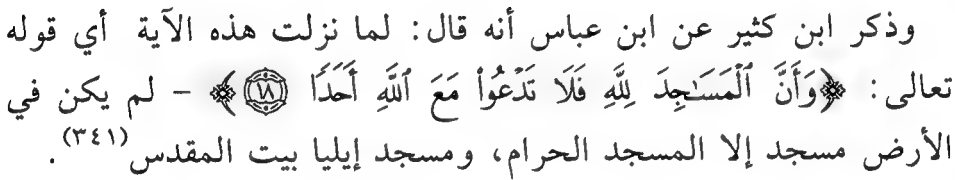 وذكر ابن كثير عن ابن عباس أنه قال: لما نزلت هذه الآية أي قوله
تعالى: ﴿وَأَنَّ ٱلْمَسَـٰجِدَ لِلَّهِ فَلَا تَدْعُوا۟ مَعَ ٱللَّهِ أَحَدًا ١٨﴾ - لم يكن في
الأرض مسجد إلا المسجد الحرام، ومسجد إيليا بيت المقدس(٣٤١).